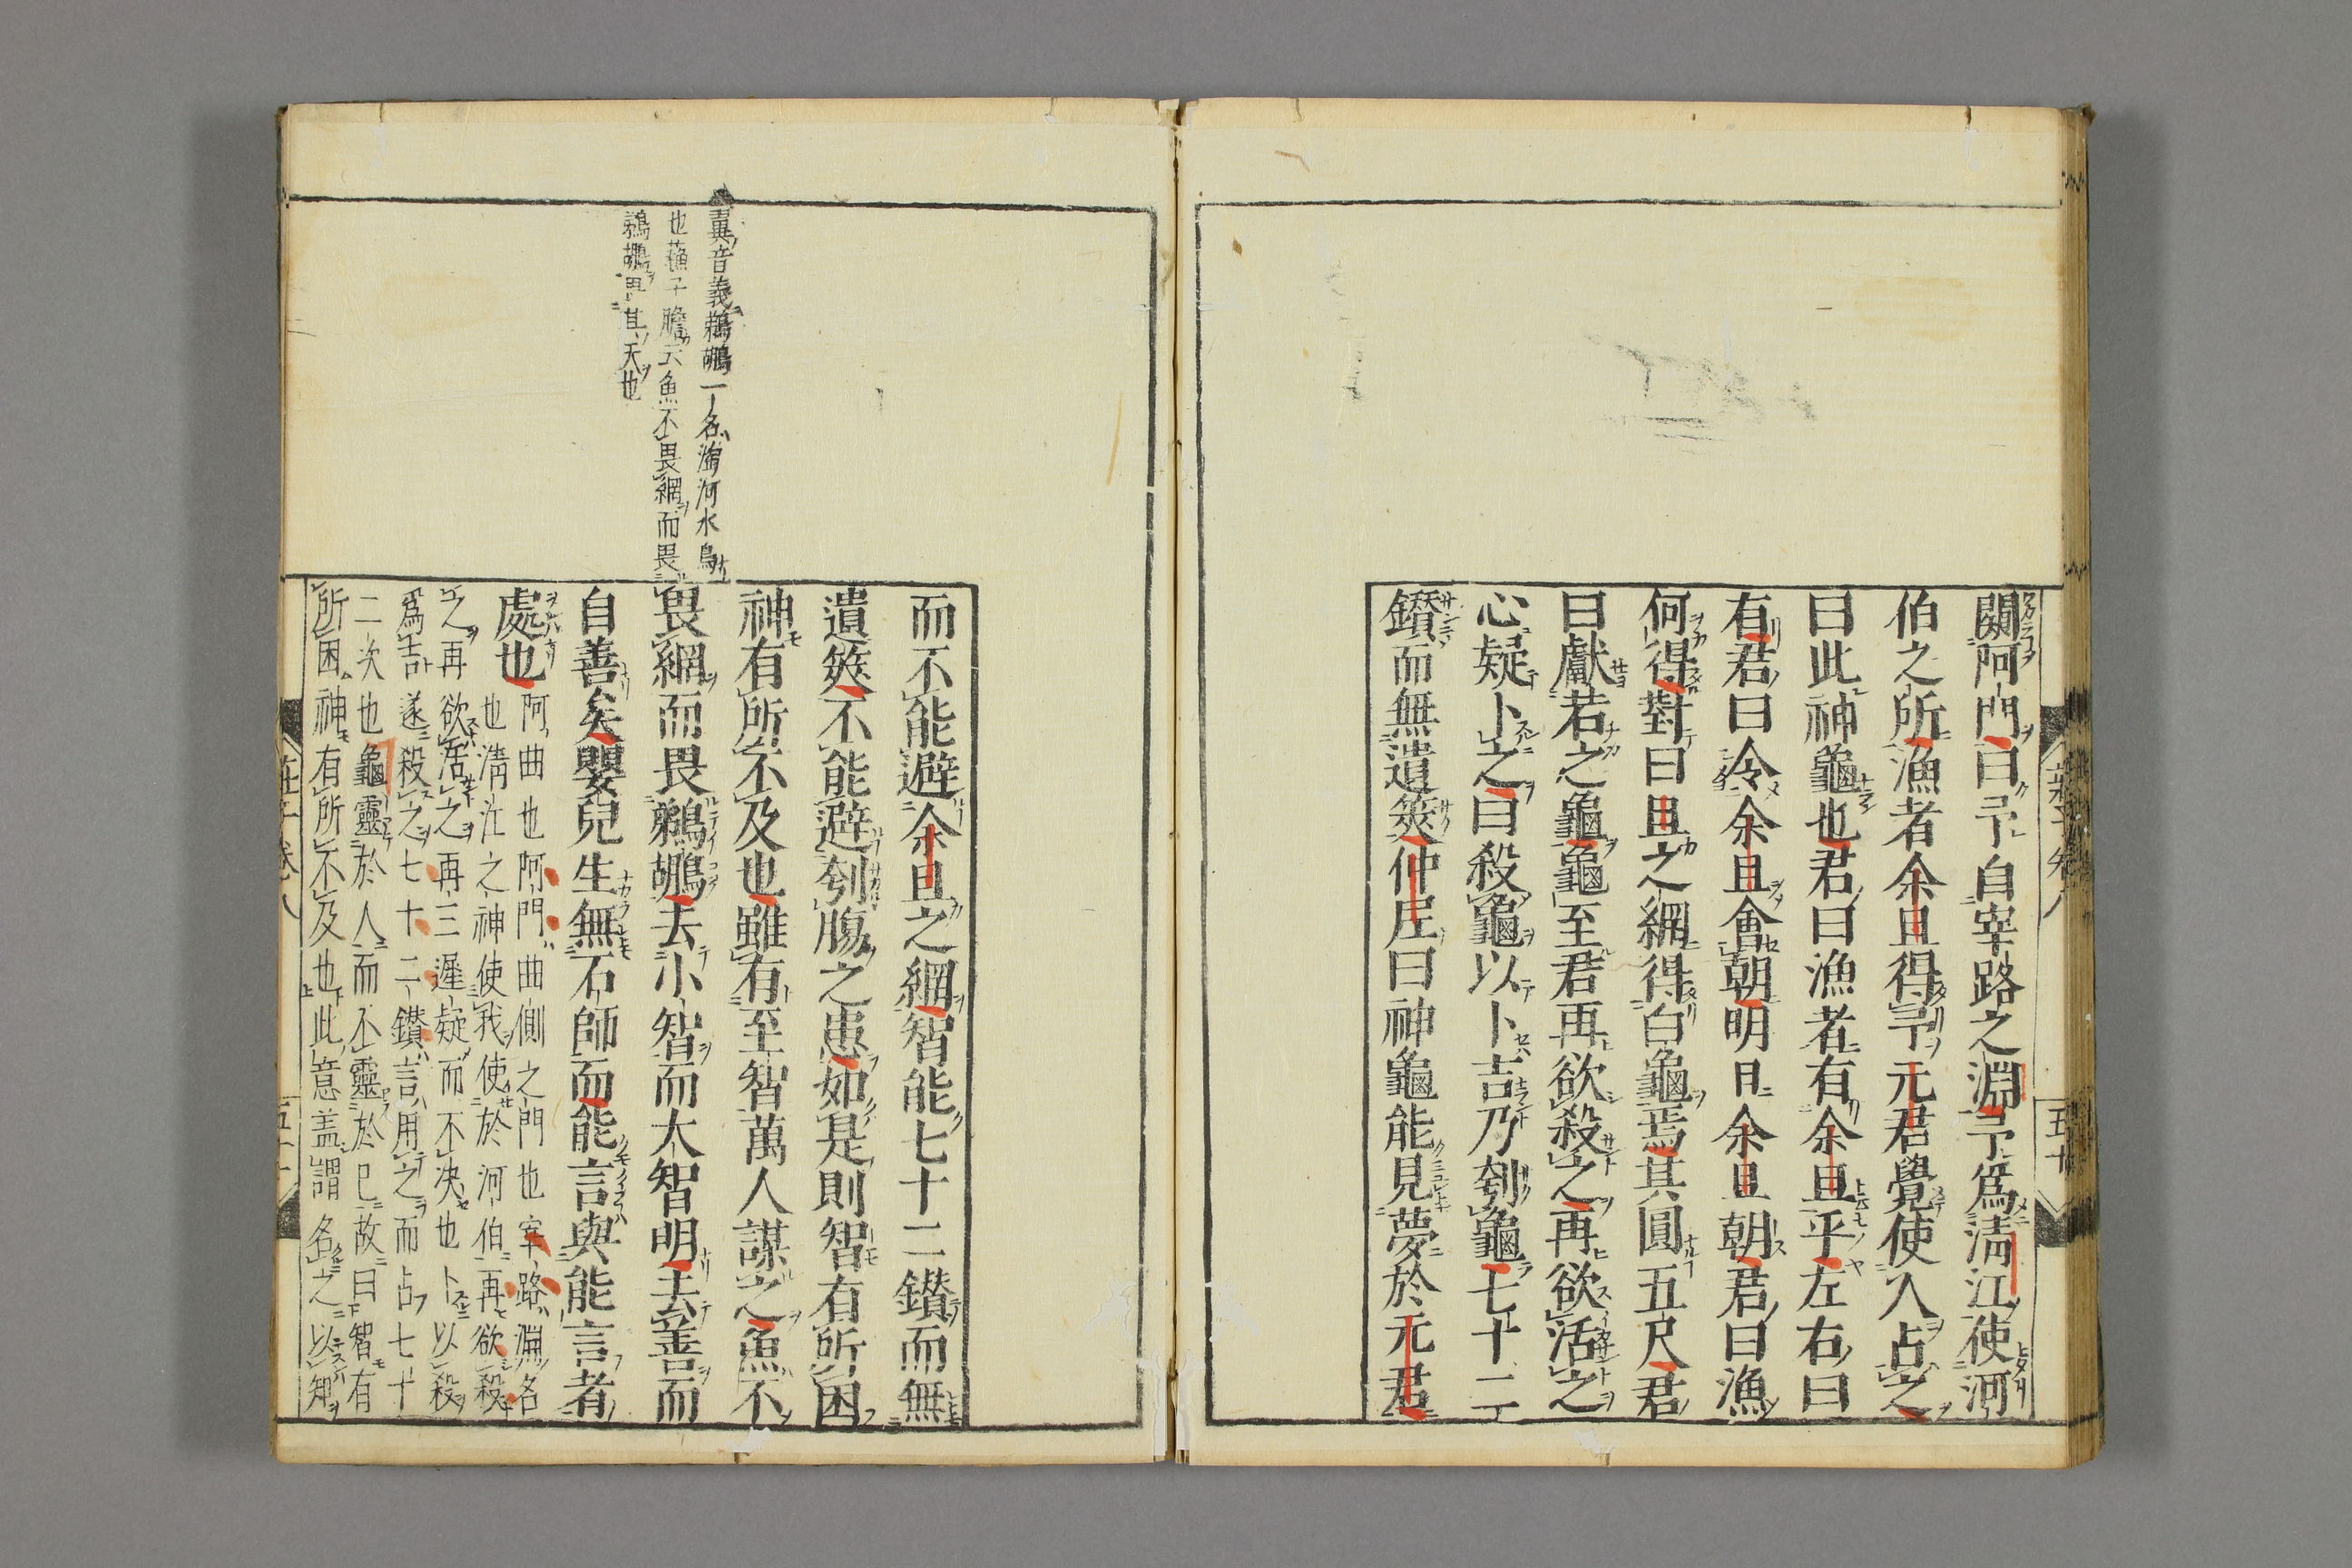 闚阿門曰予自宰路之淵予爲淸江使河
伯之所漁者余且得予元君覺使人占之
曰此神龜也君曰漁者有余且乎左右曰
有君曰令余且會朝明日余且朝君曰漁
何得對曰且之網得白龜焉其圓五尺君
曰獻若之龜龜至君再欲殺之再欲活之
心疑卜之曰殺龜以卜吉乃刳龜七十二
鑚而無遺筴仲尼曰神龜能見夢於元君
而不能避余且之網智能七十二鑚而無
遺筴不能避刳膓之患如是則智有所困
神有所不及也雖有至智萬人謀之魚不
畏網而畏鵜鶘去小智而大智明去善而
自善矣嬰兒生無石師而能言與能言者
處也
阿曲也阿門曲側之門也宰路淵名
也淸江之神使我使於河伯再欲殺
之再欲活之再三遲疑而不决也卜以殺
爲吉遂殺之七十二鑚言用之而占七十
二次也龜靈於人而不靈於已故曰智有
所困神有所不及也此意盖謂名之以知
音義鵜鶘一名淘河水鳥
也蘓子瞻云魚不畏網而畏
鵜鶘畏其天也
莊子卷八
五十